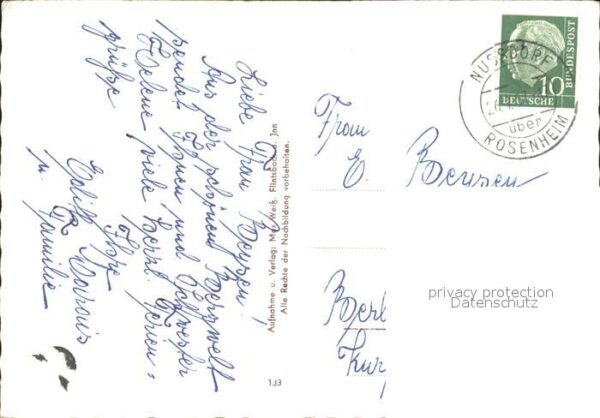 Liebe Frau Beusen!
Aus der schönen Bergwelt
sendet Ihnen und Schwester
Helene viele herzl. Ferien=
grüße
Ihre
Edith
u. Familie
Aufnahme u. Verlag: Max Weiß, Flintsbach a. Inn
Alle Rechte der Nachbildung vorbehalten.
133
Frau
E. Beusen
Berl
Kur
10
DEUTSCHE
BUNDESPOST
NUSSDORF
über
ROSENHEIM
privacy protection
Datenschutz